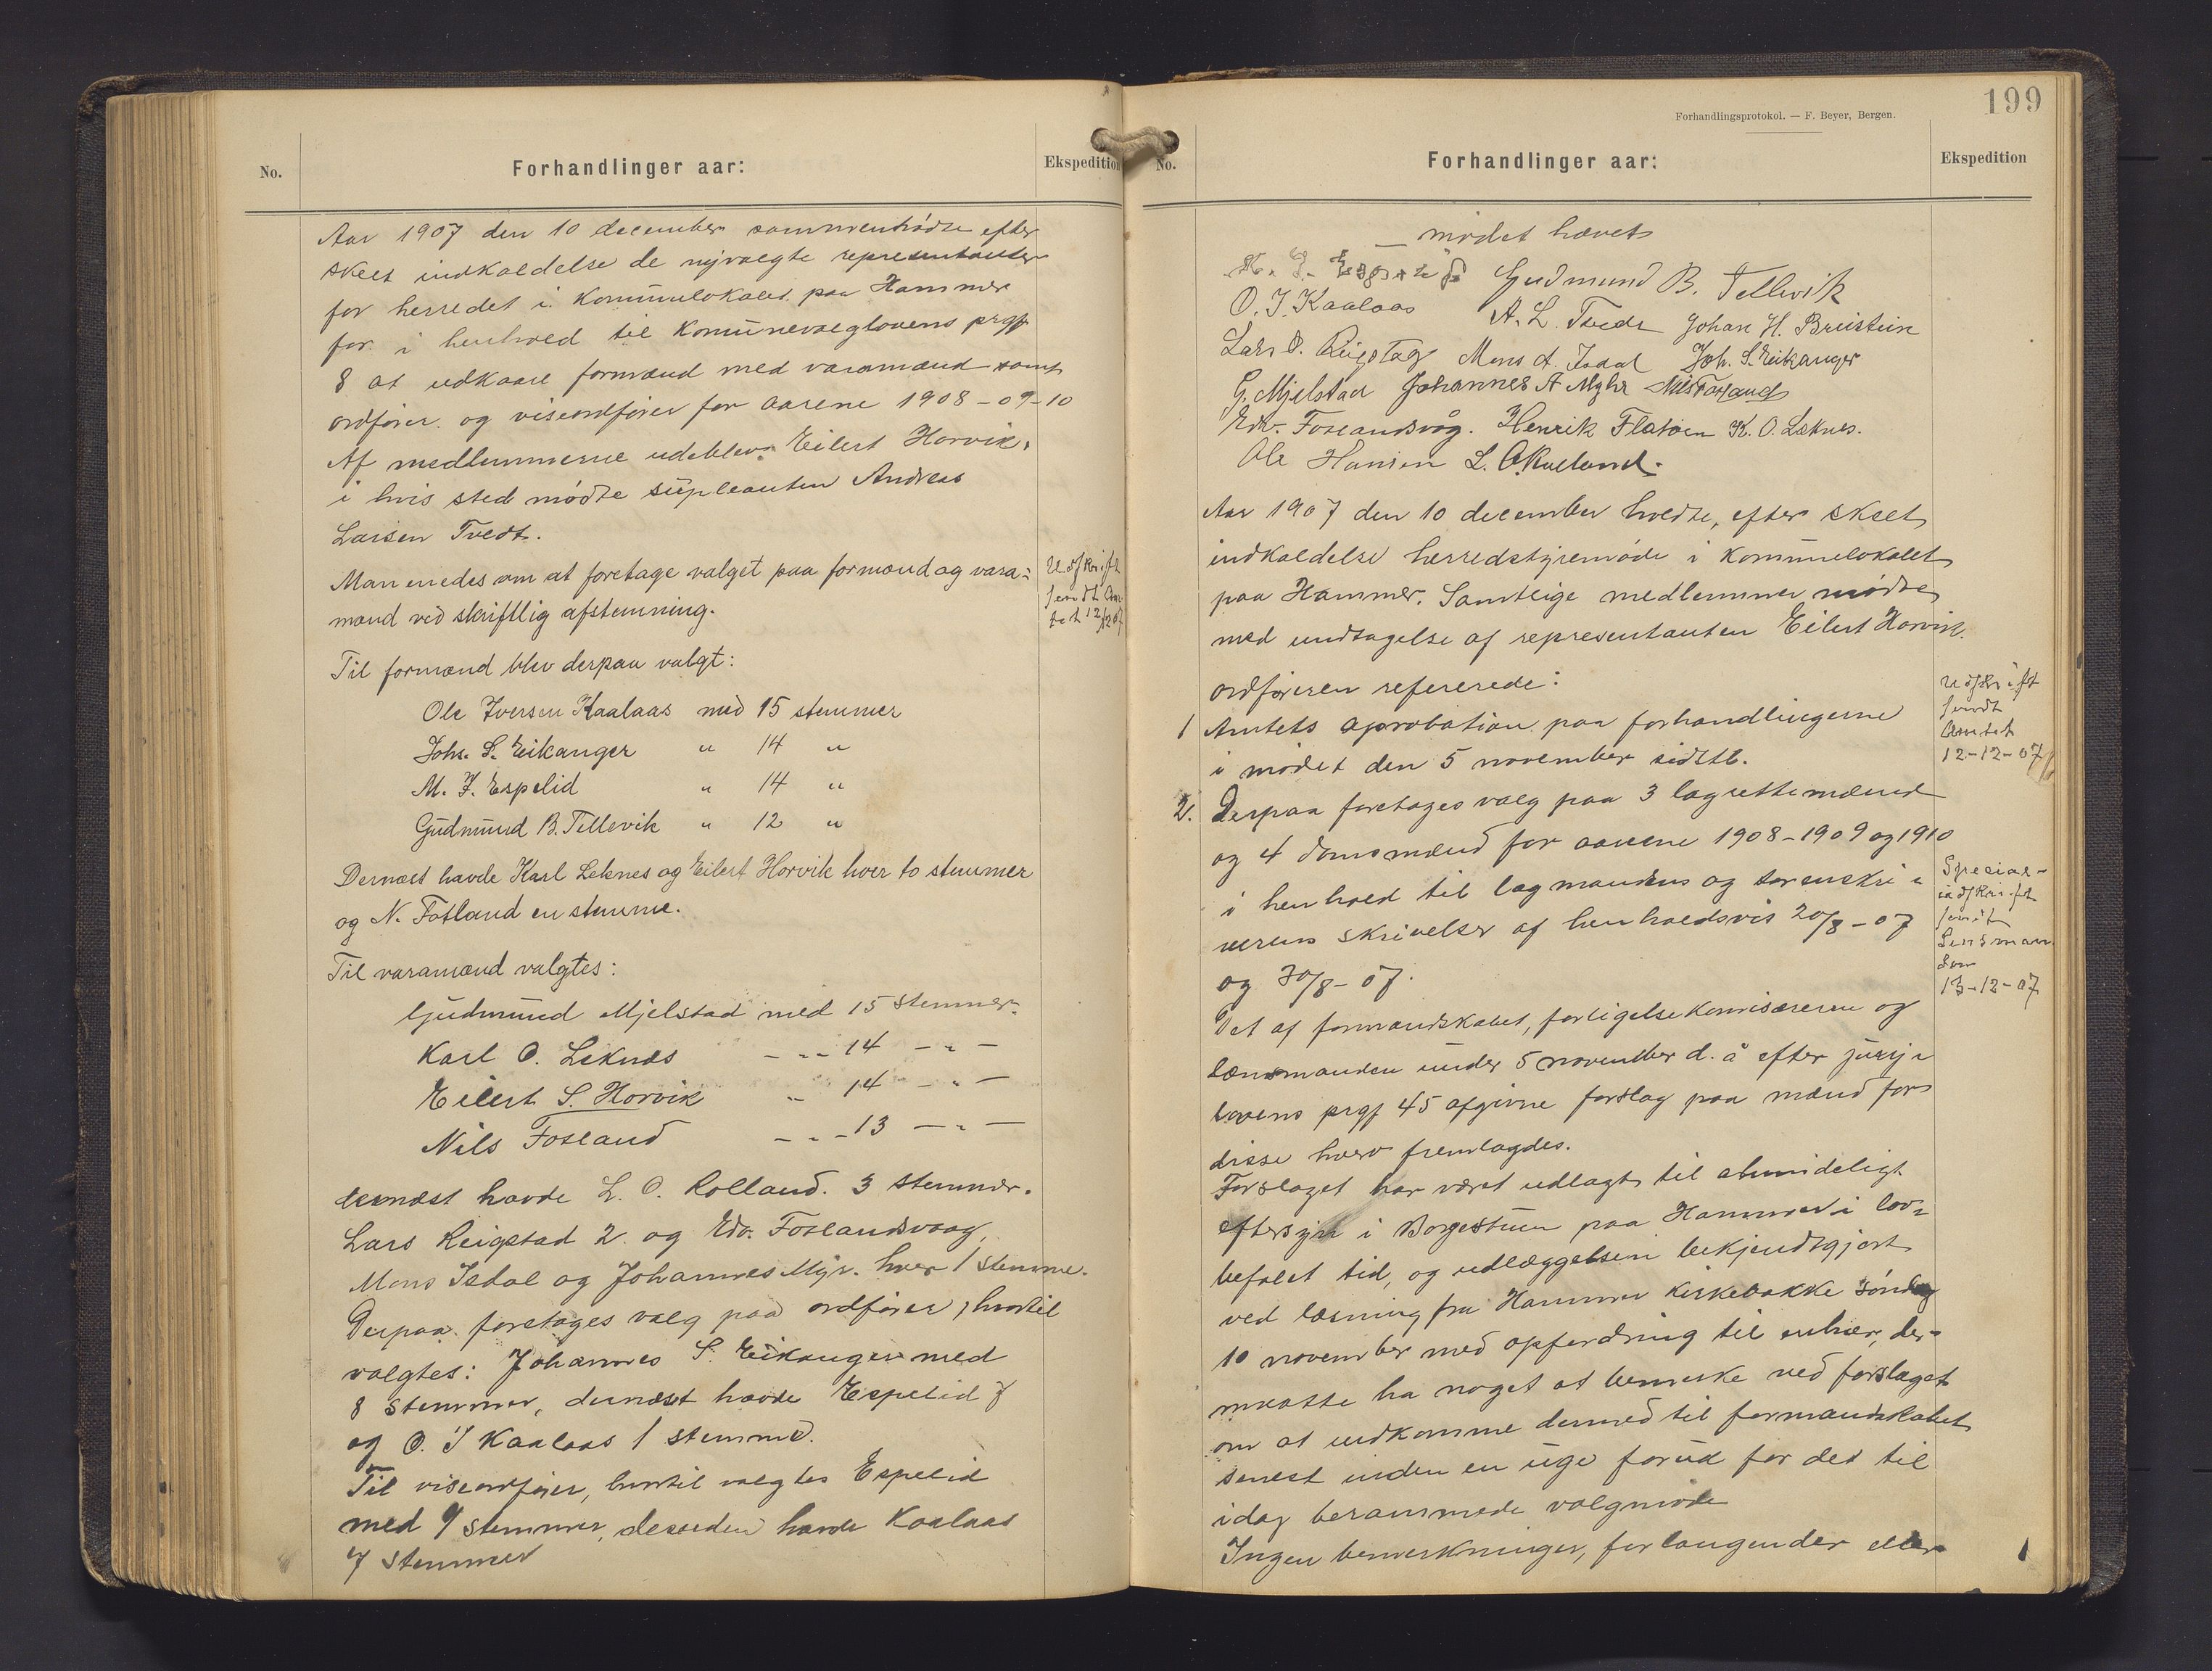 No.
Forhandlinger aar:
Ekspedition
Aar 1907 den 10 december sammentraadte efter
skeet indkaldelse de nyvalgte representanter
for herredet i Kommunelokalet paa Hammer
for i henhold til Komunevalglovens prgf
8 at udkaare formænd med varamænd samt
ordfører og viseordfører for aarene 1908-09-10
Af medlemmerne udeblev Eilert Horvik,
i hvis sted mødte supleanten Andreas
Larsen Tvedt.
Man enedes om at foretage valget paa formænd og vara-
mænd ved skriftlig afstemning.
Udskrift
sendt Am
tet 12/12 07
Til formænd blev derpaa valgt:
Ole Iversen Kaalaas med 15 stemmer
Johs. S. Eikanger " 14 "
M. J. Espelid " 14 "
Gudmund B. Tellevik " 12 "
Dernæst havde Karl Leknes og Eilert Horvik hver to stemmer
og N. Fotland en stemme.
Til varamænd valgtes:
Gudmund Mjelstad med 15 stemmer.
Karl O. Leknes - " - 14 - " -
Eilert S. Horvik " 14 - " -
Nils Fosland - " - 13 - " -
dernæst havde L. O. Rolland. 3 stemmer.
Lars Reigstad 2 og Edv. Foslandsvaag,
Mons Isdal og Johannes Myr. hver 1 stemme.
Derpaa foretages valg paa ordfører, hvortil
valgtes: Johannes S. Eikanger med
8 stemmer, dernæst havde Espelid 7
og O. I Kaalaas 1 stemme.
Til viseordfører, hvortil valgtes Espelid
med 9 stemmer, desuden havde Kaalaas
7 stemmer
199
Forhandlingsprotokol. — F. Beyer, Bergen.
No.
Forhandlinger aar:
Ekspedition
— mødet hævet
M. J. Espelid Gudmund B. Tellevik
O. I. Kaalaas A. L. Tvedt Johan H. Breistein
Lars O. Reigstag Mons A. Isdal Joh. S. Eikanger
G. Mjelstad Johannes A Myhr Nils Fosland
Edv. Foslandsvåg. Henrik Flatøen K. O. Leknes.
Ole Hansen L. O Rolland.
Aar 1907 den 10 december holdte, efter skeet
indkaldelse herredstyremøde i Kommunelokalet
paa Hammer. Samtlige medlemmer mødte
med undtagelse af representanten Eilert Horvik.
ordføreren refererede:
1 Amtets aprobation paa forhandlingerne
i mødet den 5 november sidstl.
Udskrift
sendt
Amtet
12-12-07
2. Derpaa foretages valg paa 3 lagrettemænd
og 4 domsmænd for aarene 1908-1909 og 1910
i henhold til lagmandens og sorenskri-
verens skrivelser af henholdsvis 20/8-07
og 30/8-07.
Special-
udskrift
sendt
Lensman
den
13-12-07
Det af formandskabet, forligelseskomisæreren og
lænsmanden under 5 november d. å efter jury-
lovens prgf 45 afgivne forslag paa mænd for
disse hverv fremlagdes.
Forslaget har været udlagt til almindeligt
eftersyn i Borgestuen paa Hammer i lov-
befalet tid, og udlæggelsen bekjendtgjort
ved læsning fra Hammer kirkebakke søndag
10 november med opfordring til enhver, der
maatte ha noget at bemerke ved forslaget
om at indkomme dermed til formandskabet
senest inden en uge forud for det til
idag berammede valgmøde
Ingen bemerkninger, forlangender eller